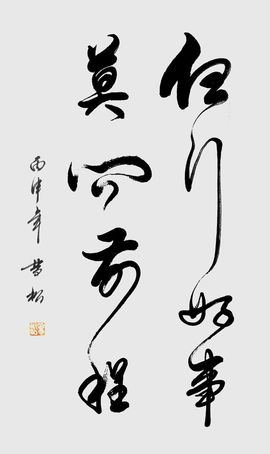 但行好事
莫问前程
丙申年